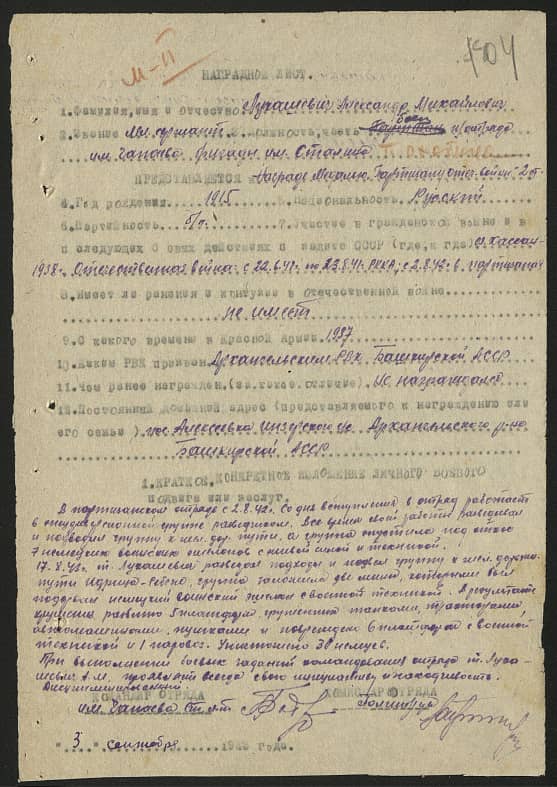 М-II
НАГРАДНОЕ ЛИСТ.
1.Фамилия,имя и отчество Лукашевич Александр Михайлович
2.Звание мл.сержант 3.Должность,часть боец п/отряда
им. Чапаева бригады им. Сталина
ПРЕДСТАВЛЯЕТСЯ к награде Медалью Партизану отеч. войны 2 ст.
4.Год рождения 1915 5.Национальность Русский
6.Партийность б/п. 7.Участие в гражданской войне и в
последующих боевых действиях по защите СССР (где,когда) о.Хассан
1938г. Отечественная война с 22.6.41г. по РККА, с 2.8.42г. в партизанах
8.Имеет ли ранения и контузии в отечественной войне
не имеет
9.С какого времени в Красной Армии 1937
10.Каким РВК призван Архангельским РВК Башкирской АССР
11.Чем ранее награжден.(за какие отличия) Не награждался
12.Постоянный домашний адрес (представляемого к награждению или
его семьи) Архангельского р-на
Башкирской АССР
1.КРАТКОЕ,КОНКРЕТНОЕ ИЗЛОЖЕНИЕ ЛИЧНОГО БОЕВОГО
подвига или заслуг.
В партизанском отряде с 2.8.42г. Со дня вступления в отряд работает
в диверсионной группе разведчиком. Все время своей работы разведывал
и подводил группу к жел.дор. пути, а группа пустила под откос
7 немецких воинских эшелонов с живой силой и техникой.
17.8.43г. т. Лукашевич разведал подходы и подвел группу к жел. дорож.
пути Идрица-Себеж, группа заложила две мины, которыми был
подорван немецкий воинский эшелон с военной техникой. В результате
крушения разбито 5 платформ груженных танками, тракторами,
автомашинами, пушками и повреждено 6 платформ с военной
техникой и 1 паровоз. Уничтожено 30 немцев.
При выполнении боевых заданий командования отряда т. Лука-
шевич А.М. проявлял всегда свою инициативу и находчивость.
Дисциплинированный
КОМАНДИР ОТРЯДА КОМИССАР ОТРЯДА
им. Чапаева ст. л-т Политрук
"3" сентября 1943 года.